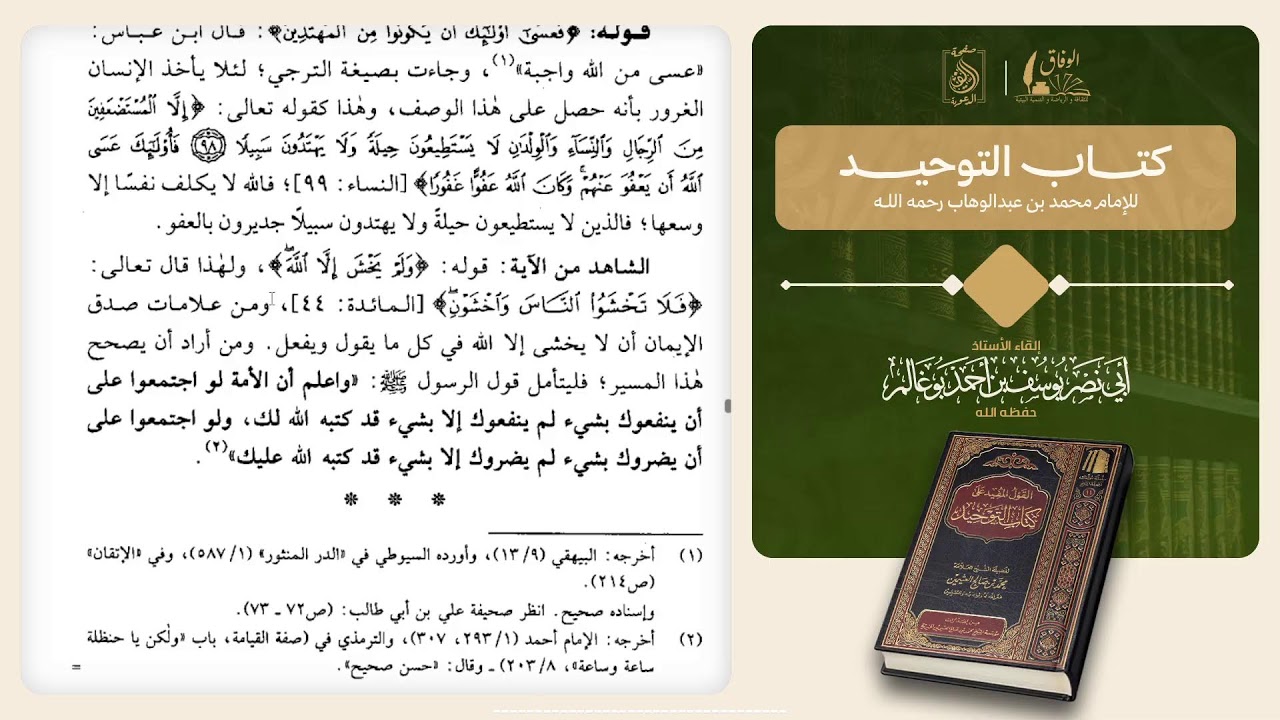 قوله: ﴿فَعَسَىٰٓ أُوْلَٰٓئِكَ أَن يَكُونُوا مِنَ الْمُهْتَدِينَ﴾: قال ابن عباس:
«عسى من الله واجبة»(١)، وجاءت بصيغة الترجي؛ لئلا يأخذ الإنسان
الغرور بأنه حصل على هٰذا الوصف، وهٰذا كقوله تعالى: ﴿إِلَّا الْمُسْتَضْعَفِينَ
مِنَ الرِّجَالِ وَالنِّسَآءِ وَالْوِلْدَانِ لَا يَسْتَطِيعُونَ حِيلَةً وَلَا يَهْتَدُونَ سَبِيلًا ۝٩٨ فَأُوْلَٰٓئِكَ عَسَى
اللَّهُ أَن يَعْفُوَ عَنْهُمْ ۚ وَكَانَ اللَّهُ عَفُوًّا غَفُورًا﴾ [النساء: ٩٩]؛ فالله لا يكلف نفسًا إلا
وسعها؛ فالذين لا يستطيعون حيلةً ولا يهتدون سبيلًا جديرون بالعفو.
الشاهد من الآية: قوله: ﴿وَلَمْ يَخْشَ إِلَّا اللَّهَ ۖ﴾، ولهٰذا قال تعالى:
﴿فَلَا تَخْشَوُا النَّاسَ وَاخْشَوْنِ ۖ﴾ [المائدة: ٤٤]، ومن علامات صدق
الإيمان أن لا يخشى إلا الله في كل ما يقول ويفعل. ومن أراد أن يصحح
هٰذا المسير؛ فليتأمل قول الرسول ﷺ: «واعلم أن الأمة لو اجتمعوا على
أن ينفعوك بشيء لم ينفعوك إلا بشيء قد كتبه الله لك، ولو اجتمعوا على
أن يضروك بشيء لم يضروك إلا بشيء قد كتبه الله عليك»(٢).
* * *
(١) أخرجه: البيهقي (١٣/٩)، وأورده السيوطي في «الدر المنثور» (٥٨٧/١)، وفي «الإتقان»
(ص٢١٤).
وإسناده صحيح. انظر صحيفة علي بن أبي طالب: (ص٧٢ ـ ٧٣).
(٢) أخرجه: الإمام أحمد (٢٩٣/١، ٣٠٧)، والترمذي في (صفة القيامة، باب «ولٰكن يا حنظلة
ساعة وساعة»، ٢٠٣/٨) ـ وقال: «حسن صحيح».
=
الوفاق
للثقافة و الرياضة و التنمية البيئية
صفحة
الدعوية
كتاب التوحيد
للإمام محمد بن عبدالوهاب رحمه الله
إلقاء الأستاذ
أبي نصر يوسف بن أحمد بوغالم
حفظه الله
القول المفيد على
كتاب التوحيد
لفضيلة الشيخ العلامة
محمد بن صالح العثيمين